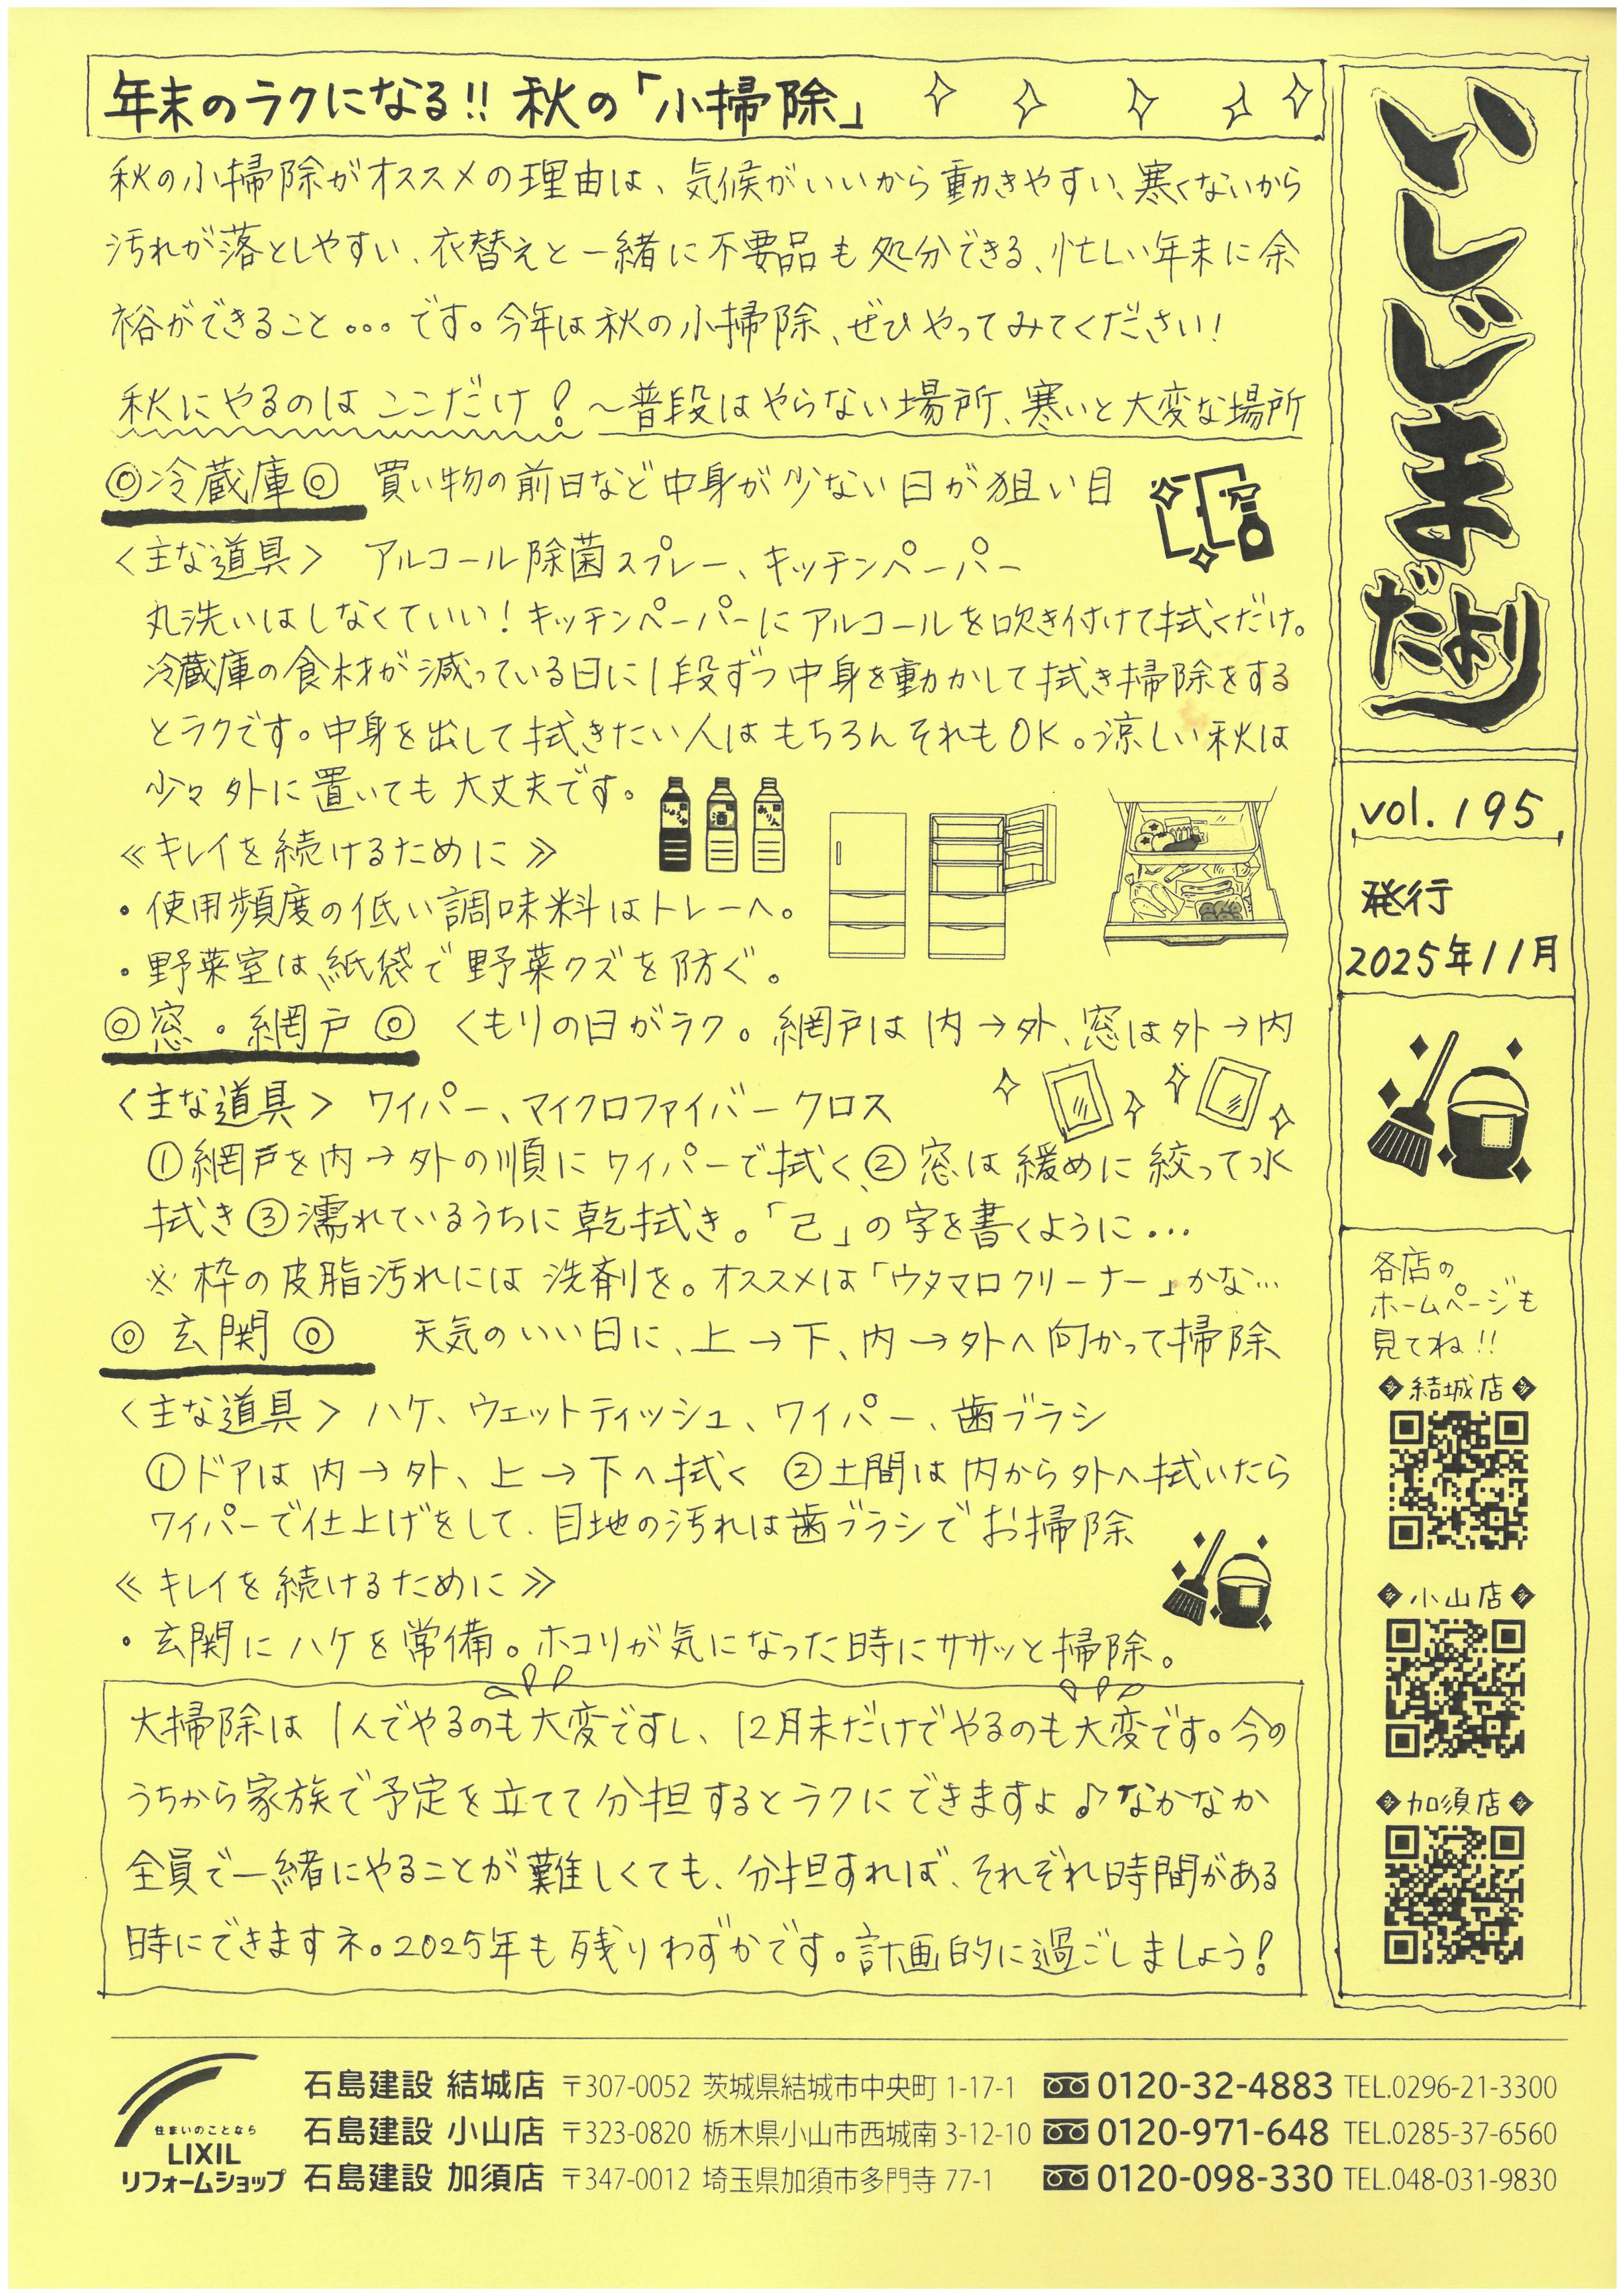 年末のラクになる!! 秋の「小掃除」
秋の小掃除がオススメの理由は、気候がいいから動きやすい、寒くないから
汚れが落としやすい、衣替えと一緒に不要品も処分できる、忙しい年末に余
裕ができること。。。です。今年は秋の小掃除、ぜひやってみてください!
秋にやるのはここだけ!～普段はやらない場所、寒いと大変な場所
◎冷蔵庫◎ 買い物の前日など中身が少ない日が狙い目
〈主な道具〉 アルコール除菌スプレー、キッチンペーパー
丸洗いはしなくていい!キッチンペーパーにアルコールを吹き付けて拭くだけ。
冷蔵庫の食材が減っている日に1段ずつ中身を動かして拭き掃除をする
とラクです。中身を出して拭きたい人はもちろんそれもOK。涼しい秋は
少々外に置いても大丈夫です。
しょうゆ 酒 みりん
≪キレイを続けるために≫
・使用頻度の低い調味料はトレーへ。
・野菜室は紙袋で野菜クズを防ぐ。
◎窓・網戸◎ くもりの日がラク。網戸は内→外、窓は外→内
〈主な道具〉 ワイパー、マイクロファイバークロス
①網戸を内→外の順にワイパーで拭く、②窓は緩めに絞って水
拭き③濡れているうちに乾拭き。「己」の字を書くように...
※枠の皮脂汚れには洗剤を。オススメは「ウタマロクリーナー」かな...
◎玄関◎ 天気のいい日に、上→下、内→外へ向かって掃除
〈主な道具〉ハケ、ウェットティッシュ、ワイパー、歯ブラシ
①ドアは内→外、上→下へ拭く ②土間は内から外へ拭いたら
ワイパーで仕上げをして、目地の汚れは歯ブラシでお掃除
≪キレイを続けるために≫
・玄関にハケを常備。ホコリが気になった時にササッと掃除。
大掃除は1人でやるのも大変ですし、12月末だけでやるのも大変です。今の
うちから家族で予定を立てて分担するとラクにできますよ♪なかなか
全員で一緒にやることが難しくても、分担すれば、それぞれ時間がある
時にできますネ。2025年も残りわずかです。計画的に過ごしましょう!
いしじまだより
vol.195
発行
2025年11月
各店の
ホームページも
見てね!!
◆結城店◆
◆小山店◆
◆加須店◆
住まいのことなら
LIXIL
リフォームショップ
石島建設 結城店 〒307-0052 茨城県結城市中央町 1-17-1 0120-32-4883 TEL.0296-21-3300
石島建設 小山店 〒323-0820 栃木県小山市西城南 3-12-10 0120-971-648 TEL.0285-37-6560
石島建設 加須店 〒347-0012 埼玉県加須市多門寺 77-1 0120-098-330 TEL.048-031-9830